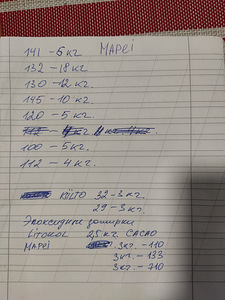 141 - 6 кг MAPEI
132 - 18 кг
130 - 12 кг.
145 - 10 кг.
120 - 5 кг.
100 - 5 кг.
112 - 4 кг.
KIILTO 32 - 3 кг.
29 - 3 кг.
Эпоксидные затирки
Litokol 2,5 кг. CACAO
MAPEI 3 кг. - 110
3 кг. - 133
3 кг. - 710